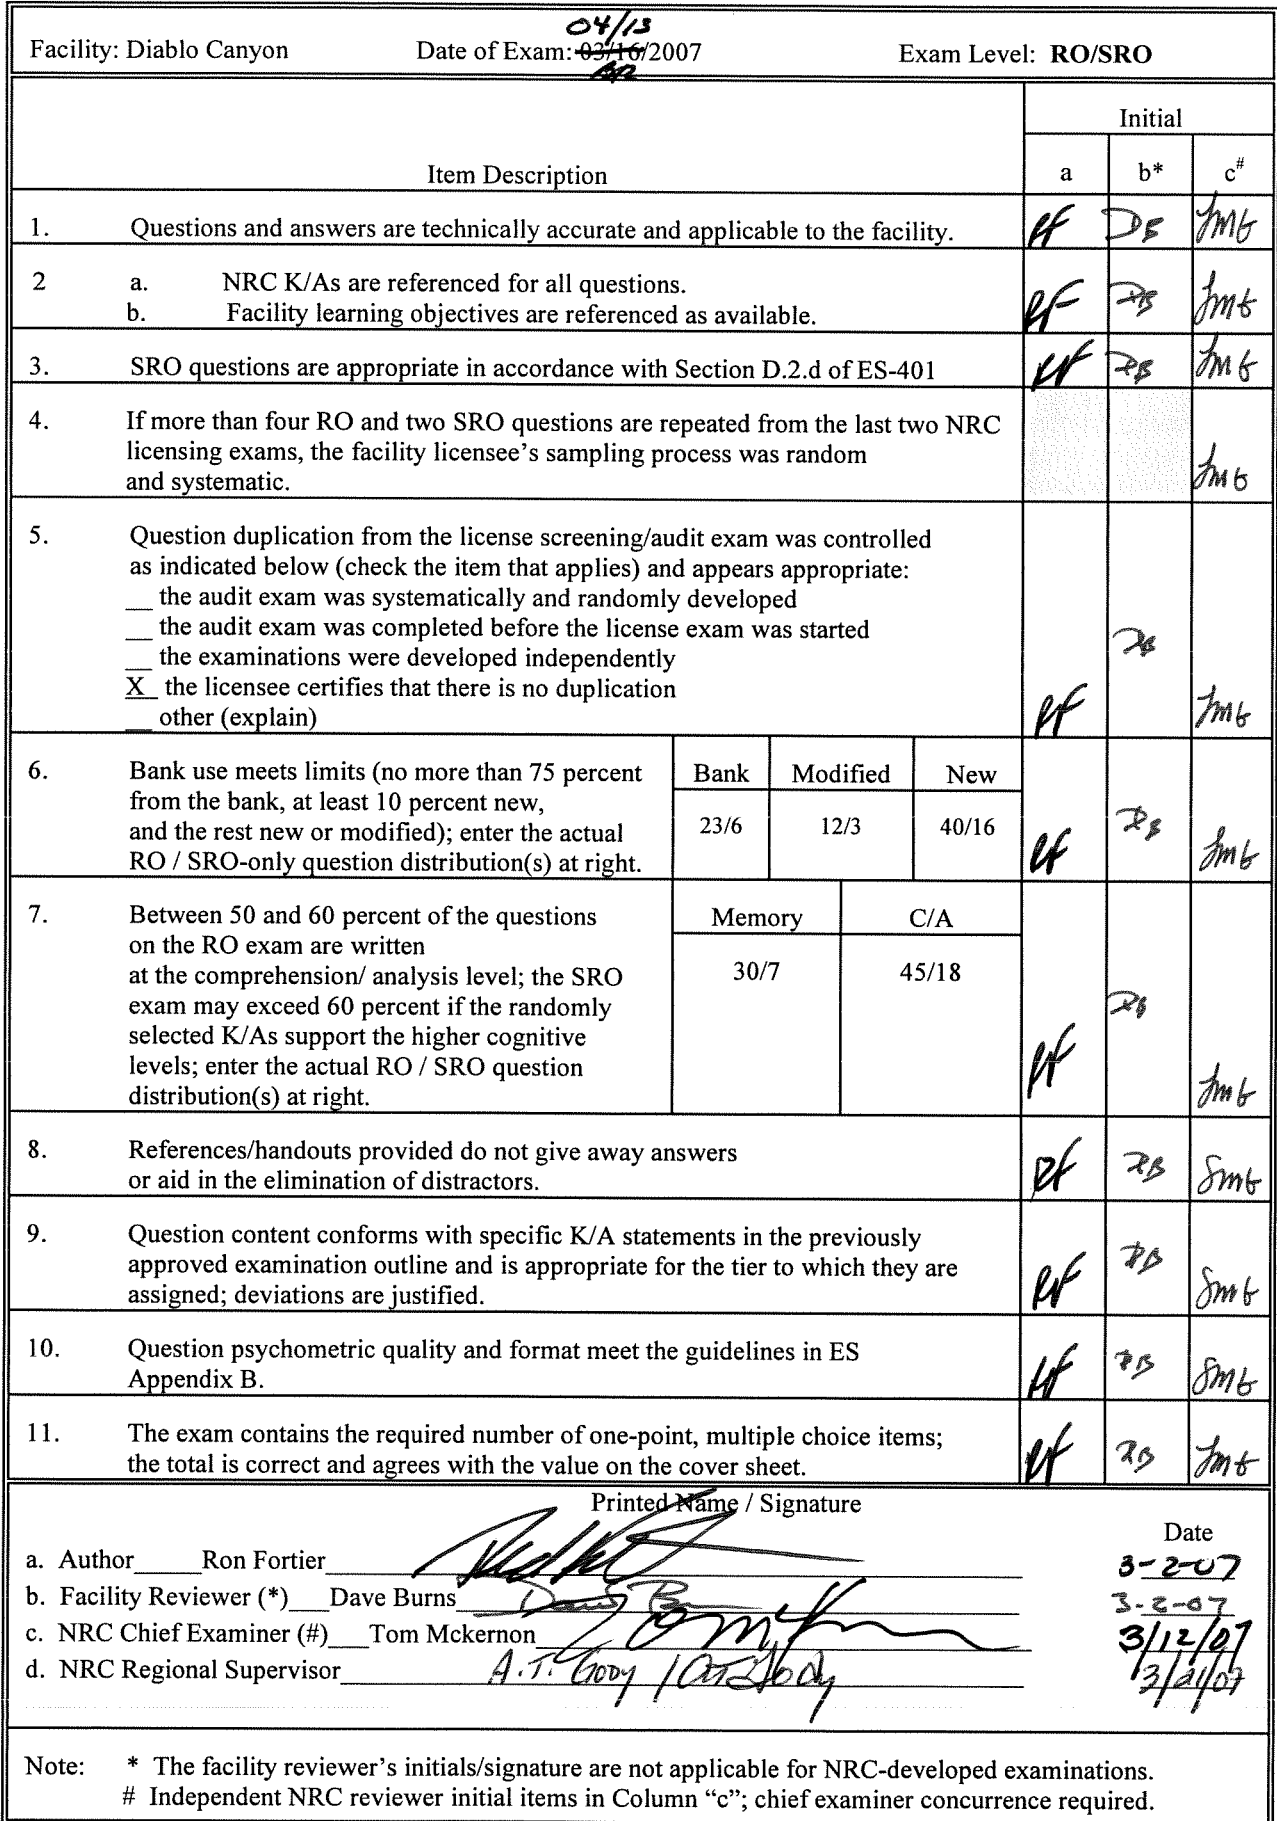 04/13
Facility: Diablo Canyon Date of Exam: 03/16/2007 Exam Level: RO/SRO
Initial
Item Description a b* c#
1. Questions and answers are technically accurate and applicable to the facility. RF DB JMG
2 a. NRC K/As are referenced for all questions.
b. Facility learning objectives are referenced as available. RF DB JMG
3. SRO questions are appropriate in accordance with Section D.2.d of ES-401 RF DB JMG
4. If more than four RO and two SRO questions are repeated from the last two NRC
licensing exams, the facility licensee's sampling process was random
and systematic. JMG
5. Question duplication from the license screening/audit exam was controlled
as indicated below (check the item that applies) and appears appropriate:
__ the audit exam was systematically and randomly developed
__ the audit exam was completed before the license exam was started
__ the examinations were developed independently DB
X the licensee certifies that there is no duplication
__ other (explain) RF JMG
6. Bank use meets limits (no more than 75 percent Bank Modified New
from the bank, at least 10 percent new,
and the rest new or modified); enter the actual 23/6 12/3 40/16 DB
RO / SRO-only question distribution(s) at right. RF JMG
7. Between 50 and 60 percent of the questions Memory C/A
on the RO exam are written
at the comprehension/ analysis level; the SRO 30/7 45/18
exam may exceed 60 percent if the randomly DB
selected K/As support the higher cognitive
levels; enter the actual RO / SRO question RF
distribution(s) at right. JMG
8. References/handouts provided do not give away answers
or aid in the elimination of distractors. RF DB JMG
9. Question content conforms with specific K/A statements in the previously
approved examination outline and is appropriate for the tier to which they are DB
assigned; deviations are justified. RF JMG
10. Question psychometric quality and format meet the guidelines in ES
Appendix B. RF DB JMG
11. The exam contains the required number of one-point, multiple choice items;
the total is correct and agrees with the value on the cover sheet. RF DB JMG
Printed Name / Signature
Date
a. Author_____Ron Fortier 3-2-07
b. Facility Reviewer (*)___Dave Burns 3-2-07
c. NRC Chief Examiner (#)___Tom Mckernon 3/12/07
d. NRC Regional Supervisor A.T. Gody / AT Gody 3/21/07
Note: * The facility reviewer's initials/signature are not applicable for NRC-developed examinations.
# Independent NRC reviewer initial items in Column "c"; chief examiner concurrence required.